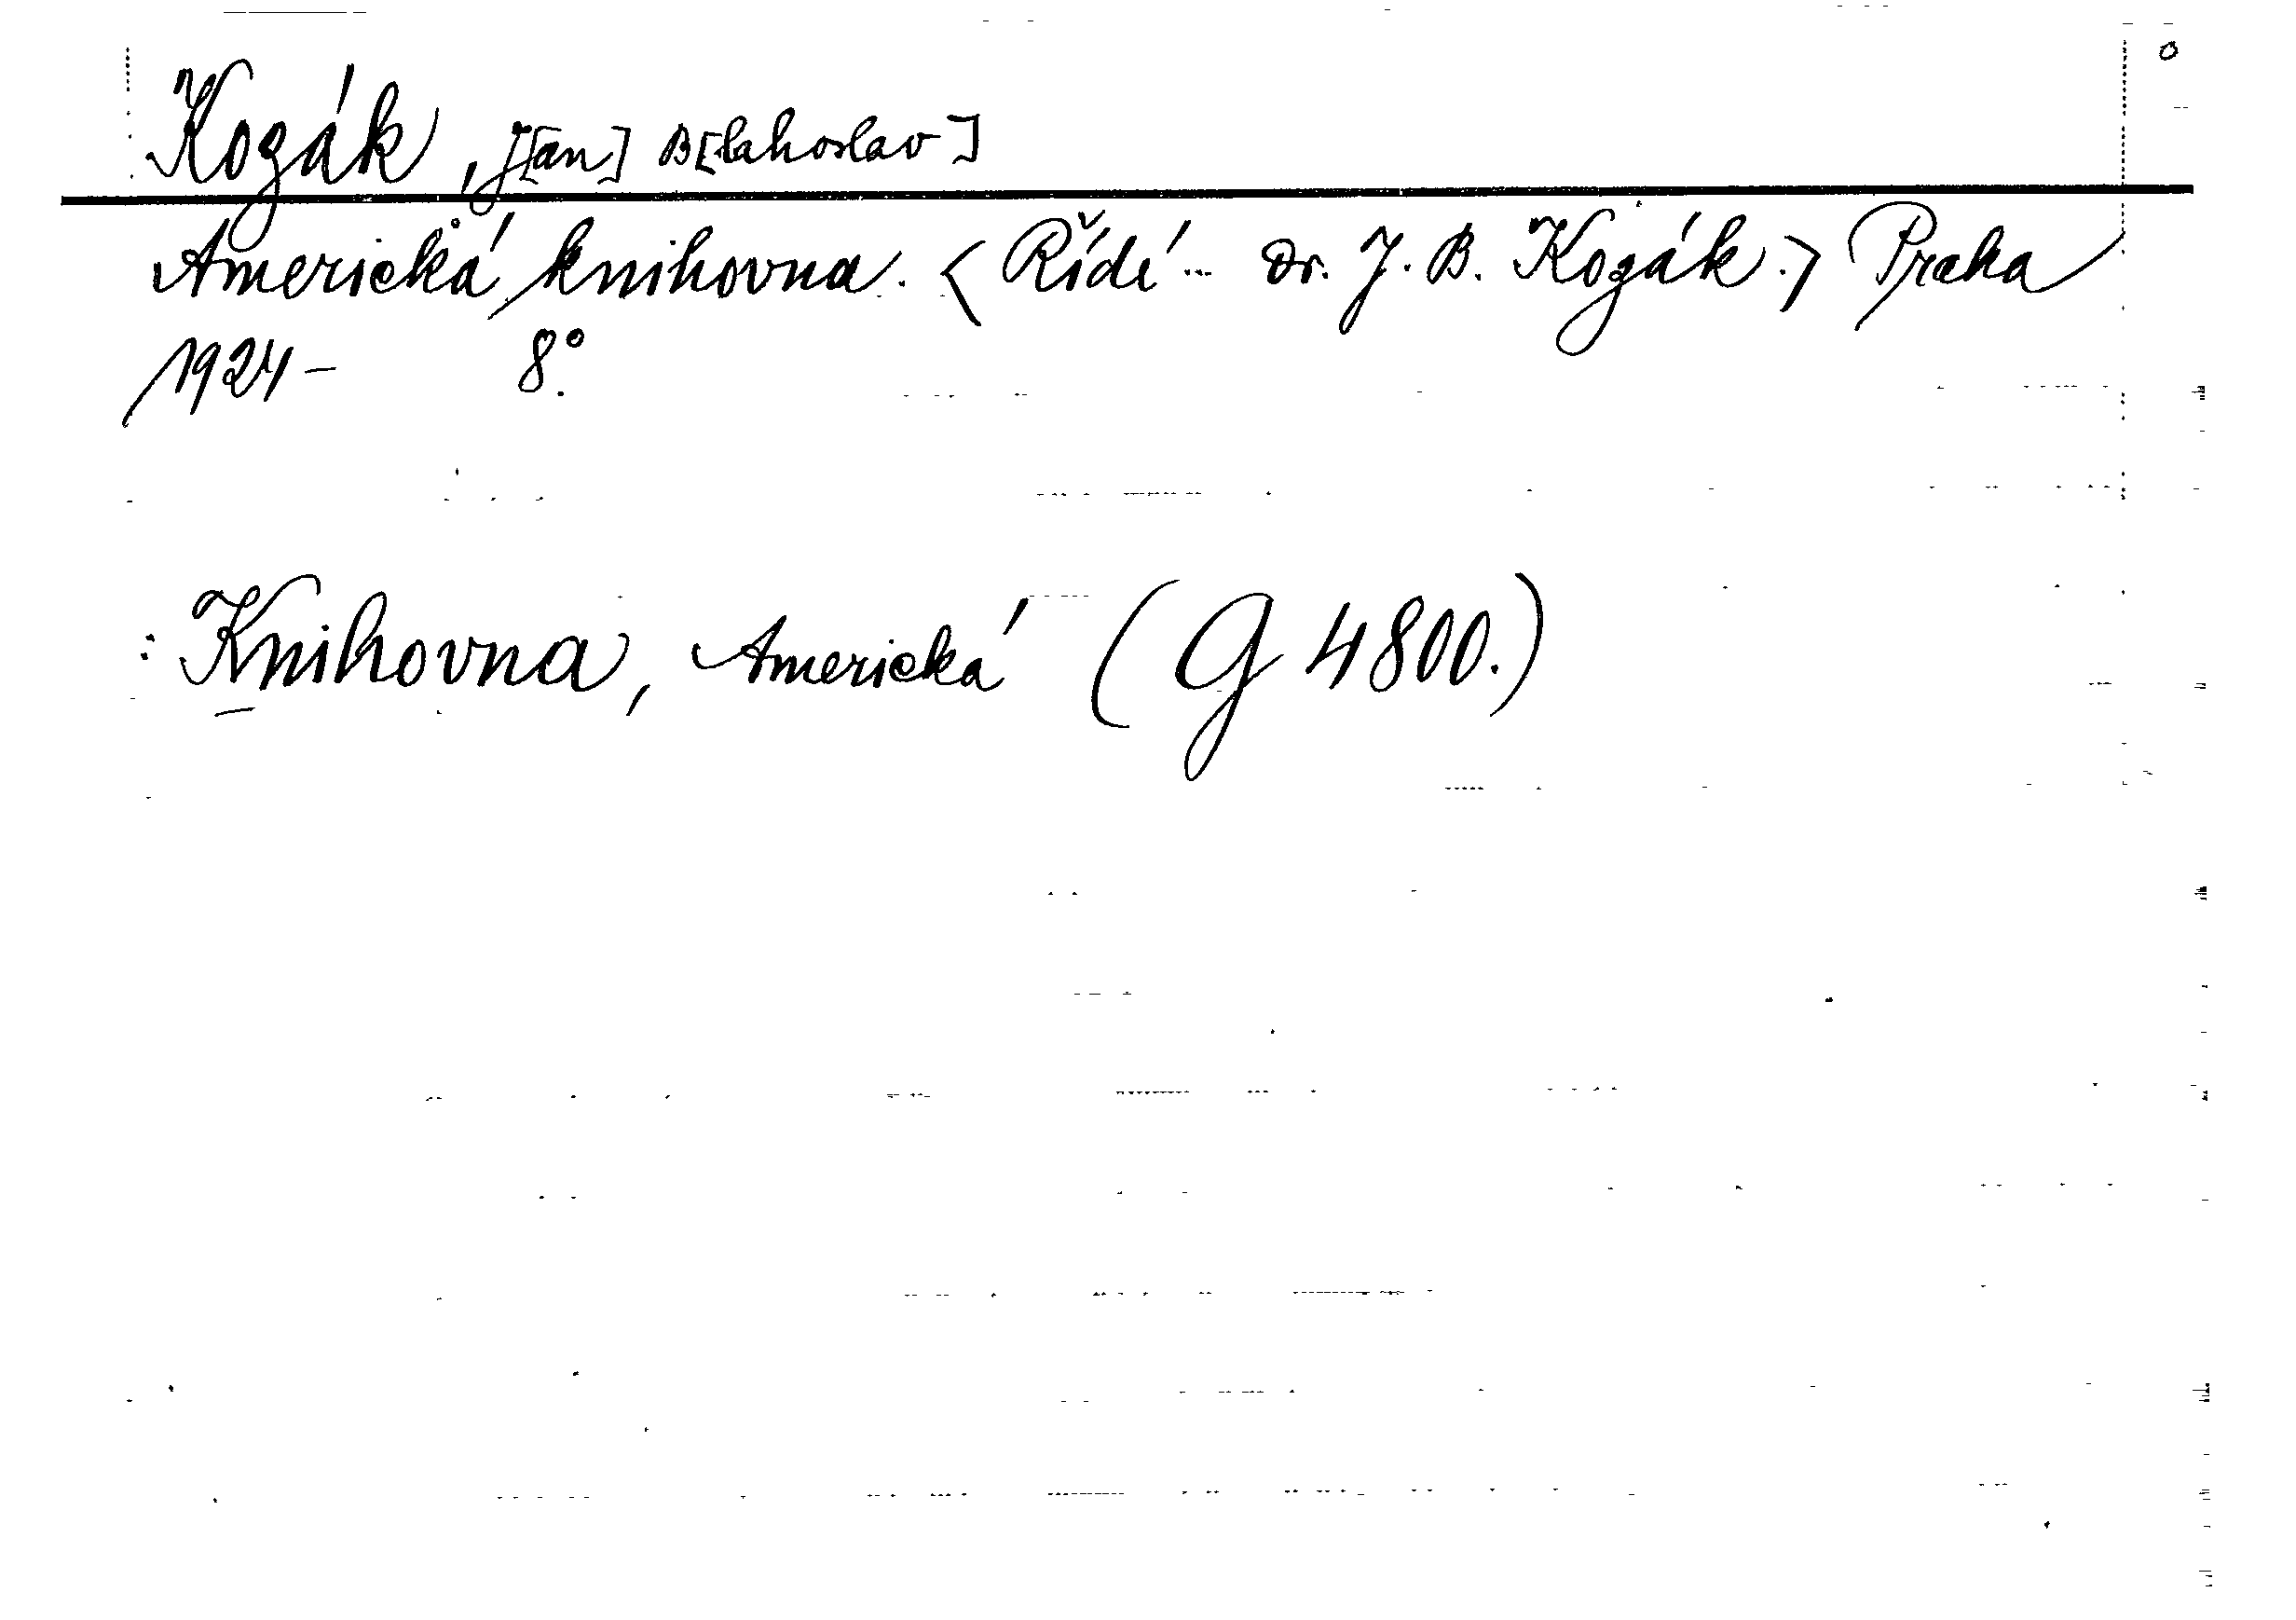 Kozák, J[an] B[lahoslav]
Americká knihovna. < Řídí - Dr. J. B. Kozák.> Praha
1924- 8°.
: Knihovna, Americká (G 4800.)